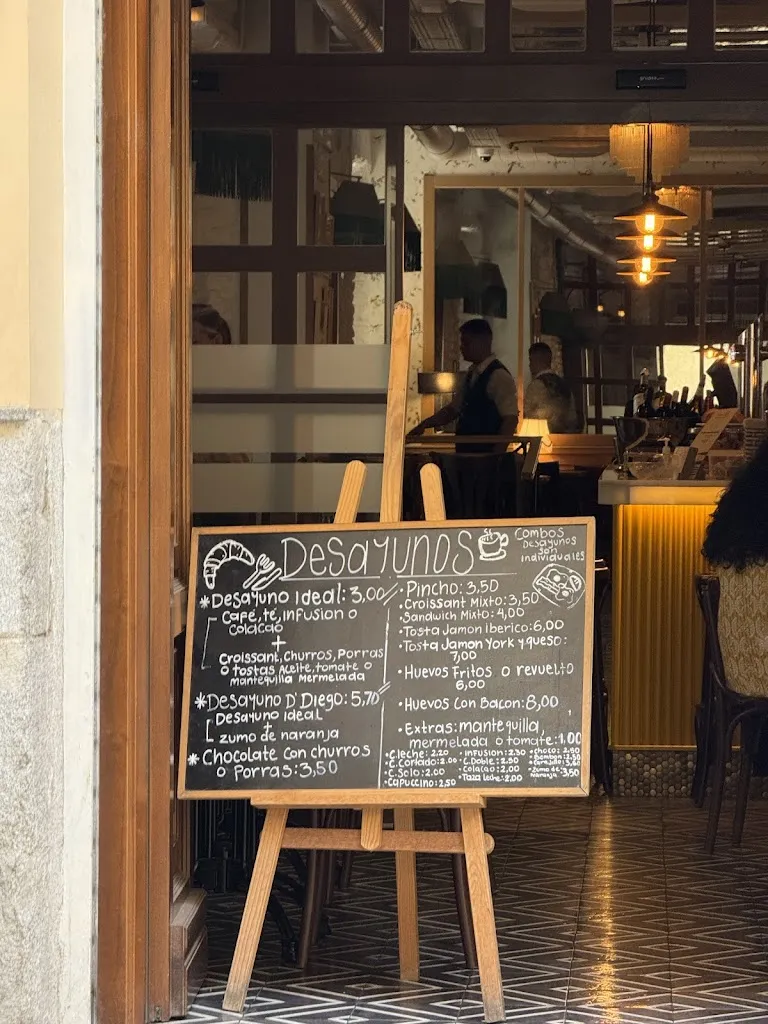 Desayunos
Combos
Desayunos
son
individuales
*Desayuno ideal: 3,00
Café, té, infusion o
Colacao
+
Croissant, Churros, Porras
o tostas Aceite, tomate o
mantequilla Mermelada
*Desayuno D'Diego: 5,70
Desayuno ideal
+
zumo de naranja
*Chocolate con churros
o Porras: 3,50
•Pincho: 3,50
•Croissant Mixto: 3,50
•Sandwich Mixto: 4,00
•Tosta Jamon iberico: 6,00
•Tosta Jamon York y queso:
7,00
•Huevos Fritos o revuelto
6,00
•Huevos Con Bacon: 8,00
•Extras: mantequilla,
mermelada o tomate: 1.00
•C.leche: 2.20 •infusion: 2.30 •choco: 2.50
•C.Cortado: 2.00 •C.Doble: 2.50 •Bombon: 2.50
•C.Solo: 2.00 •Colacao: 2,00
•Capuccino: 2,50 •Taza leche: 2.00 •Zumo de
Naranja 3,50